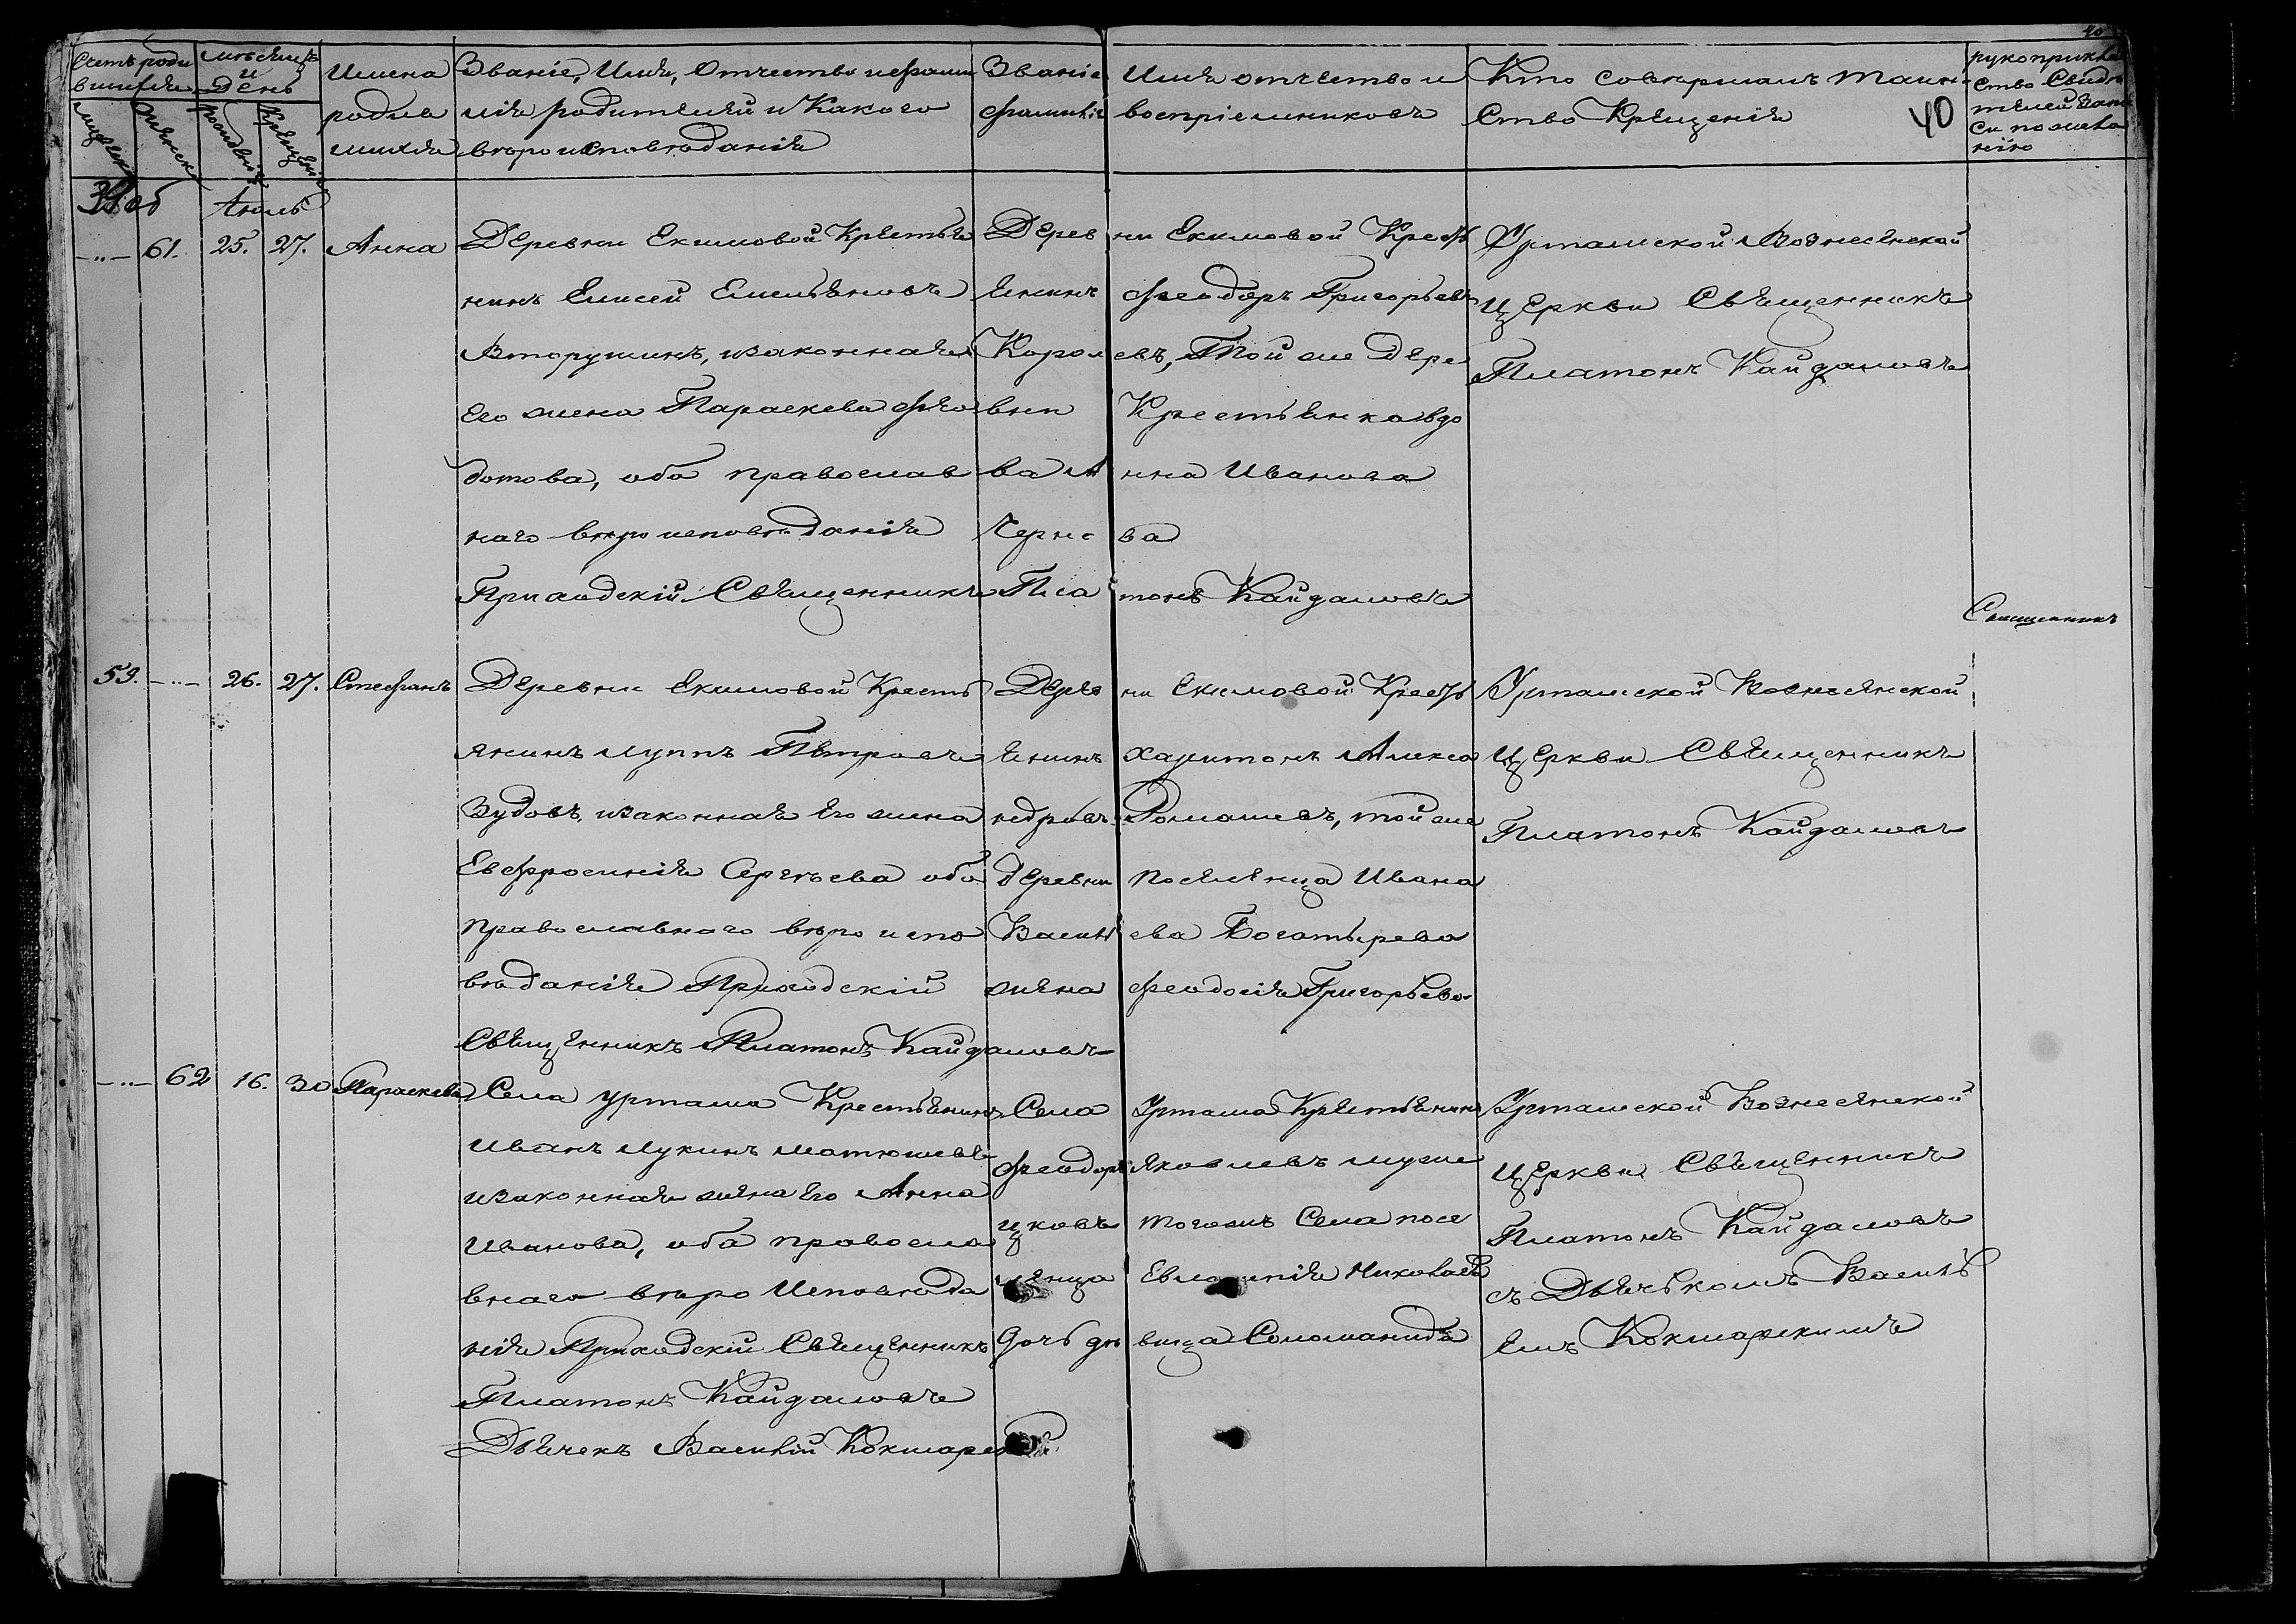 40
Счетъ роди
вшихся
Мѣсяцъ
и
День
мужеска
женск
рожденія
крещенія
Имена
родив
шихся
Званіе, Имя, Отчество и фами
лія родителей и Какого
вѣроисповѣданія
Званіе
фамилія
Имя отчество и
воспріемниковъ
Кто совершалъ таин-
ство Крещенія
40
рукоприклад
ство Свидѣ
телей запи
си по жела
нію
39 об
Іюль
-"- 61. 25. 27. Анна
Деревни Екимовой Крестья
нинъ Елисей Емельяновъ
Вторушинъ, изаконная
Его жена Параскева Фео
дотова, оба православ
наго вѣроисповѣданія
Приходскій Священникъ Пла тонъ Кайдаловъ
Дерев ни Екимовой Кресть
янинъ Феодоръ Григорьевъ
Корол евъ, Той же Дере
вни Крестьянка вдо
ва А нна Иванова
Черно ва
Урташской Вознесенской
Церкви Священникъ
Платонъ Кайдаловъ
Священникъ
59. -"- 26. 27. Стефанъ
Деревни Екимовой Кресть
янинъ Луппъ Петровъ
Зудовъ, изаконная Его жена
Евфросинія Сергѣева оба
Православнаго вѣро испо
вѣданія Приходскій
Священникъ Платонъ Кайдаловъ
Дерев ни Екимовой Кресть
янинъ Харитонъ Алекса
ндровъ Ромашевъ, той же
Деревни поселенца Ивана
Василь ева Богатырева
жена Феодосія Григорьева
Урташской Вознесенской
Церкви Священникъ
Платонъ Кайдаловъ
-"- 62 16. 30 Параскева
Села Урташа Крестьянинъ
Иванъ Лукинъ Матюшевъ
изаконная жена Его Анна
Иванова, оба правосла
внаго вѣро Исповѣда
нія Приходскій Священникъ
Платонъ Кайдаловъ
Дьячекъ Василій Кокшарскій
Села Урташа Крестьянинъ
Феодоръ Яковлевъ Муже
цковъ тогожъ Села посе
ленца Николаева
дочь дѣ вица Соломанида
Урташской Вознесенской
Церкви Священникъ
Платонъ Кайдаловъ
съ Дьячькомъ Василь
емъ Кокшарскимъ